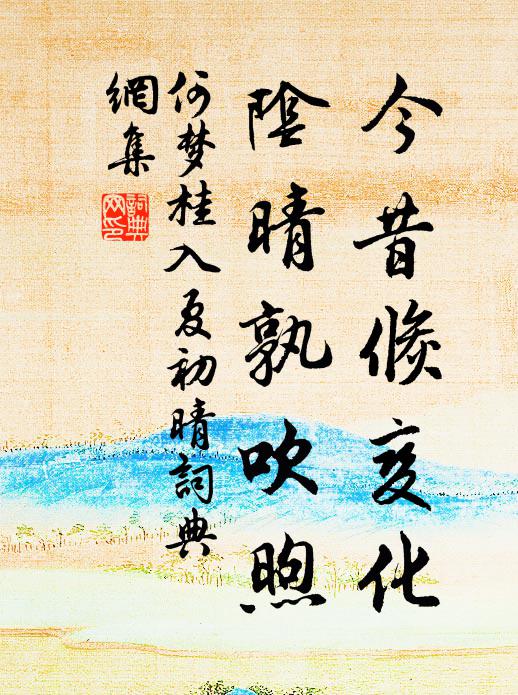 今昔倏变化
陰晴孰吹煦
何梦桂入夏初晴詞典
網集
詞典
网印